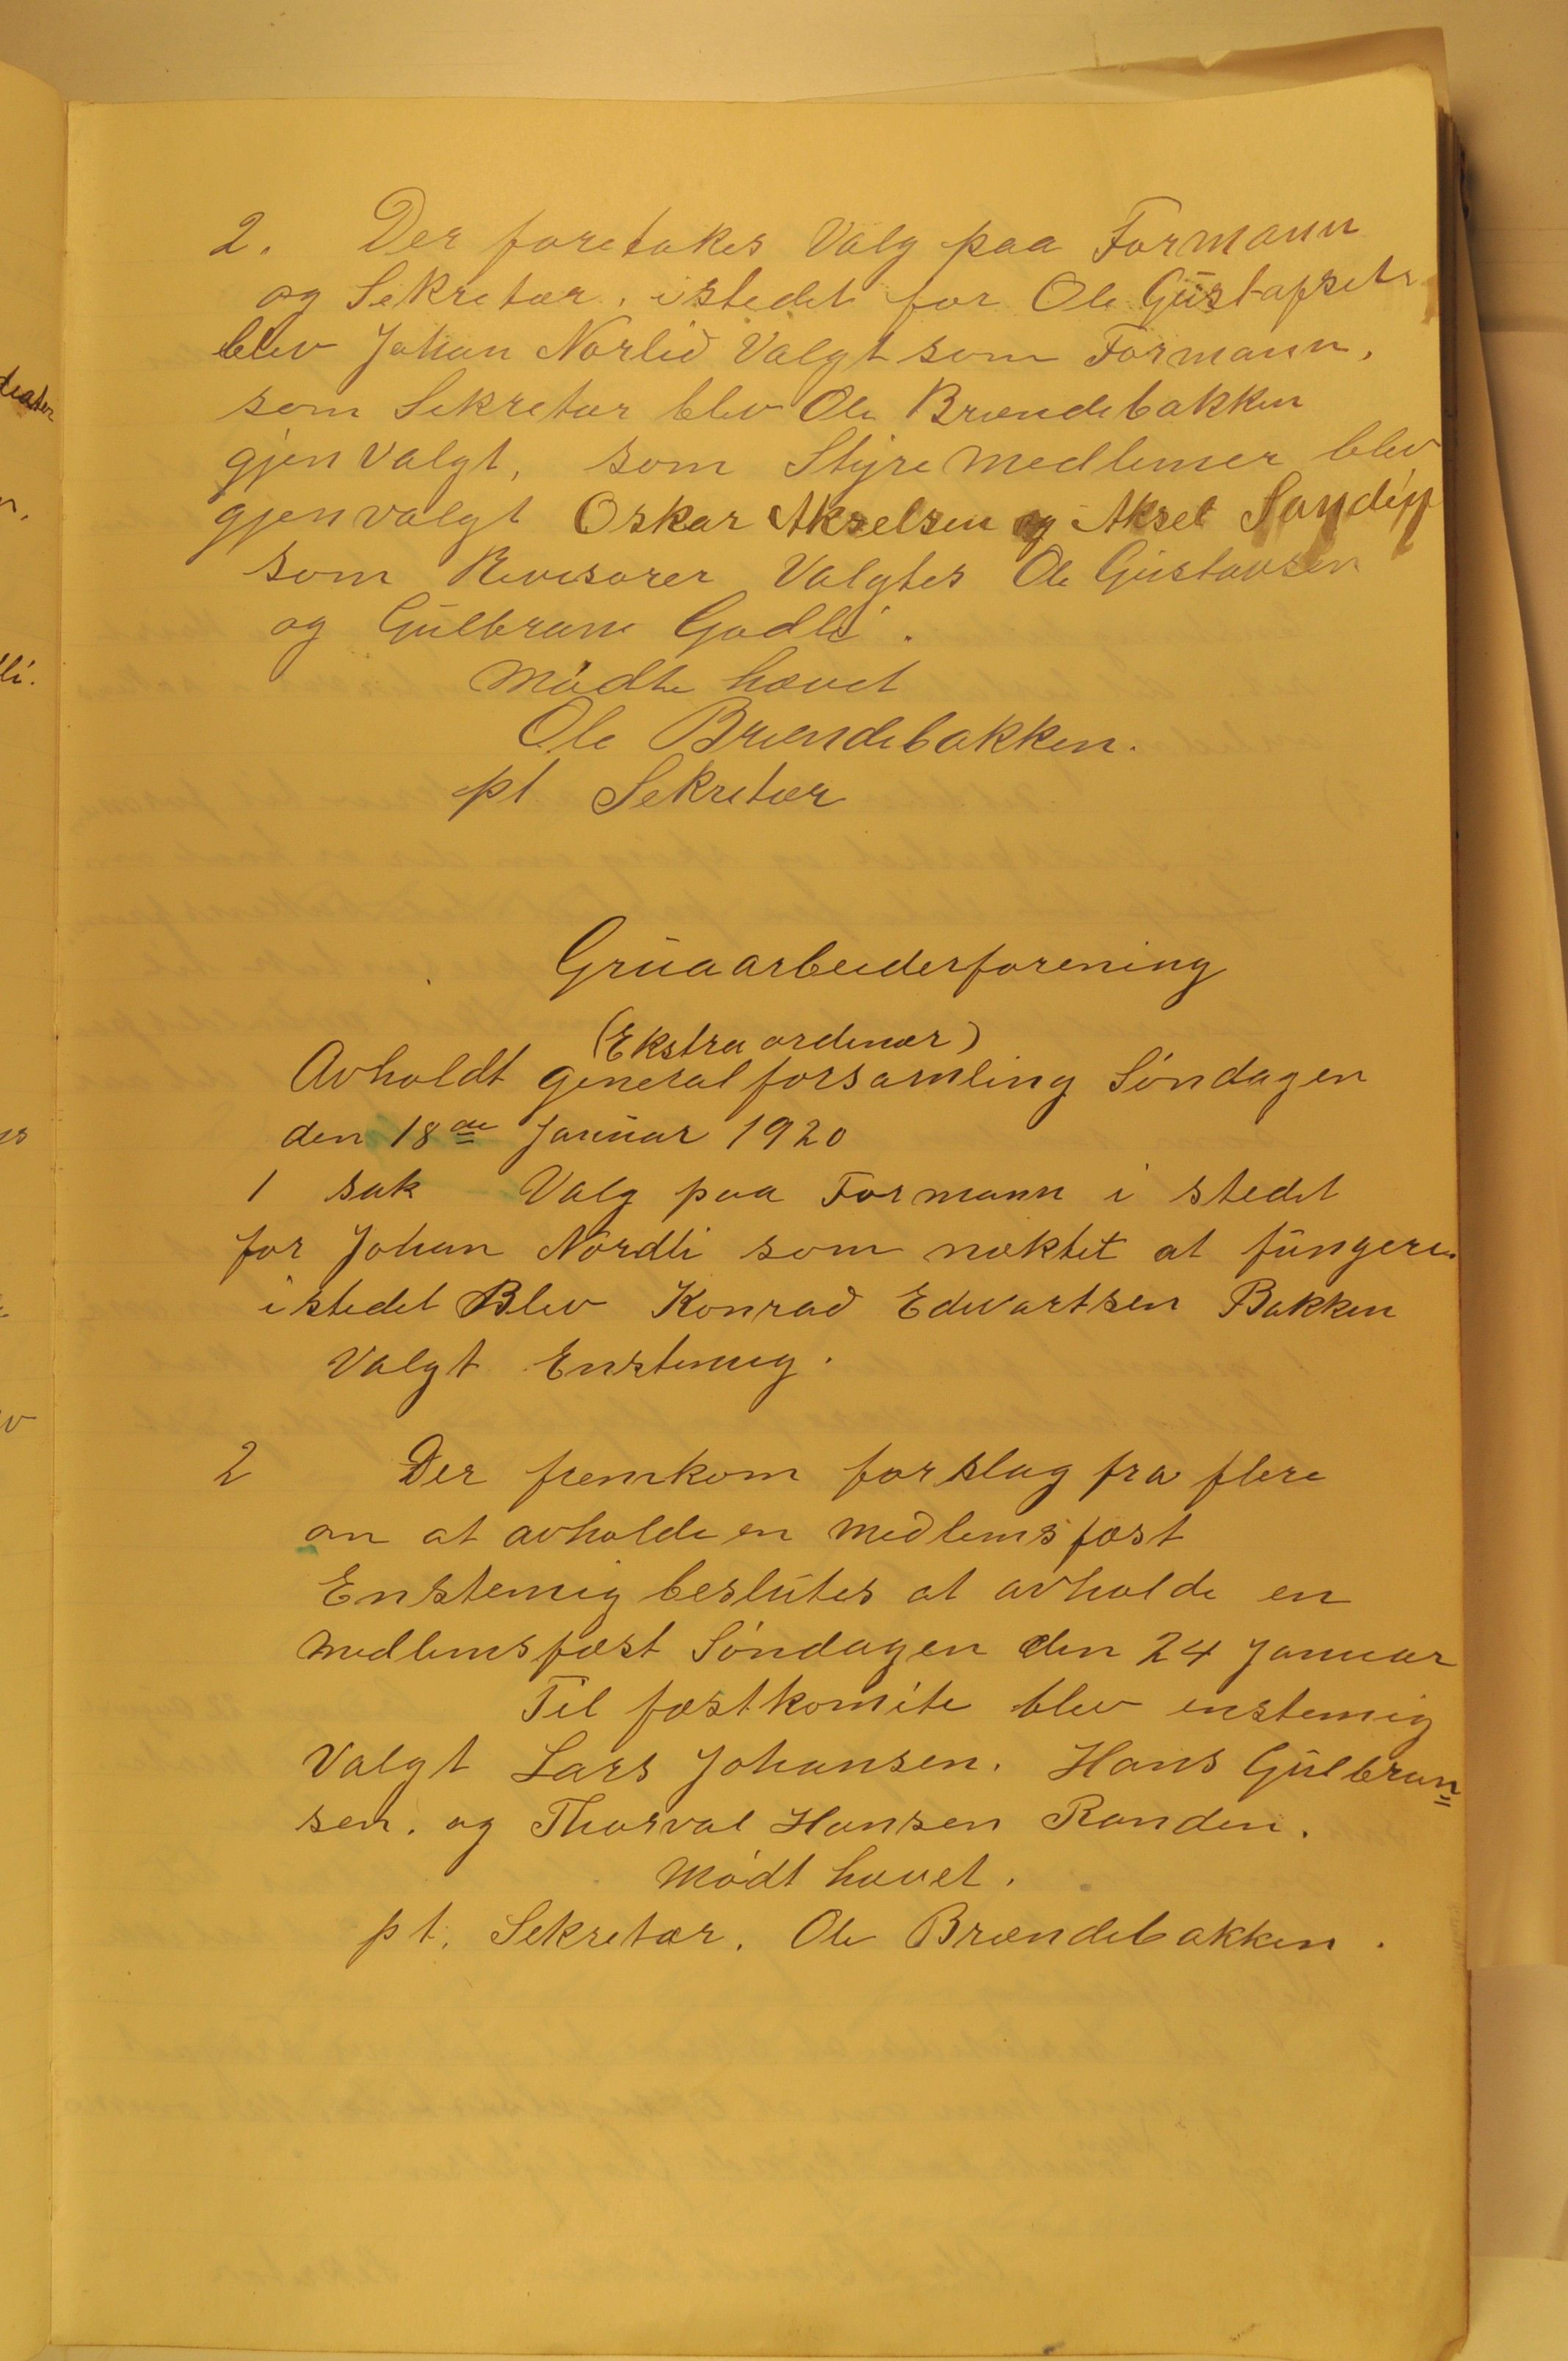 2. Der foretakes Valg paa Formann
og Sekretær. istedet for Ole
blev Johan Norlid Valgt som Formann,
som Sekretær blev Ole Brændebakken
gjenvalgt, som Styremedlemer blev
gjenvalgt Oskar Akselsen og Aksel
som Revisorer Valgtes Ole Gustavsen
og Gulbran Godli.
Mødte hævet
Ole Brændebakken.
pt Sekretær
Gruaarbeiderforening
(Ekstraordinær)
Avholdt generalforsamling Søndagen
den 18de Januar 1920
1 sak Valg paa Formann i stedet
for Johan Nordli som næktet at fungere.
istedet Blev Konrad Edvartsen Bakken
Valgt Enstemig.
2 Der fremkom forslag fra flere
om at avholde en medlemsfæst
Enstemig beslutes at avholde en
medlemsfæst Søndagen den 24 Januar
Til fæstkomite blev enstemig
Valgt Lars Johansen. Hans Gulbran=
sen. og Thorval Hansen Randen.
Mødt hævet.
pt. Sekretær. Ole Brændebakken.